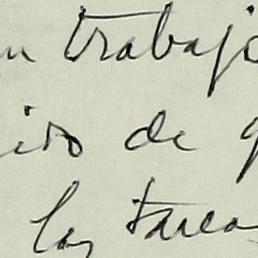 un trabajo
de
las tareas